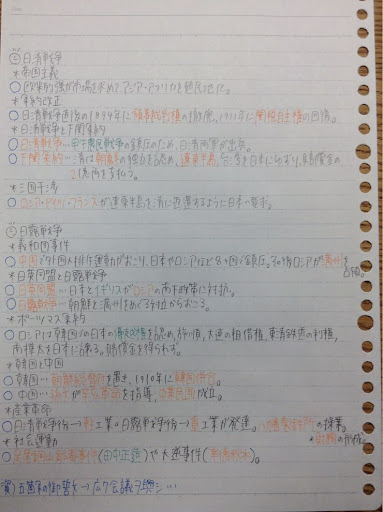 ① 日清戦争
＊帝国主義
○欧米列強が市場を求めてアジア・アフリカを植民地に。
＊条約改正
○日清戦争直前の1894年に領事裁判権の撤廃、1911年に関税自主権の回復。
＊日清戦争と下関条約
○日清戦争…甲午農民戦争の鎮圧のため、日清両軍が出兵。
○下関条約…清は朝鮮の独立を認め、遼東半島、台湾を日本にゆずり、賠償金の
2億両を支払う。
＊三国干渉
○ロシア・ドイツ・フランスが遼東半島を清に返還するように日本に要求。
② 日露戦争
＊義和団事件
○中国で外国人排斥運動がおこり、日本やロシアなど8ヶ国で鎮圧。その後ロシアが満州を
占領。
＊日英同盟と日露戦争
○日英同盟…日本とイギリスがロシアの南下政策に対抗。
○日露戦争…朝鮮と満州をめぐる対立からおこる。
＊ポーツマス条約
○ロシアは韓国での日本の優越権を認め、旅順、大連の租借権、東清鉄道の利権、
南樺太を日本に譲る。賠償金を得られず。
＊韓国と中国
○韓国…朝鮮総督府を置き、1910年に韓国併合。
○中国…孫文が辛亥革命を指導、中華民国が成立。
＊産業革命
○日清戦争後→軽工業。日露戦争後→重工業が発達。八幡製鉄所の操業。
＊社会運動
＊財閥の形成。
○足尾銅山鉱毒事件(田中正造)や大逆事件(幸徳秋水)。
五箇条の御誓文→広ク会議ヲ興シ…